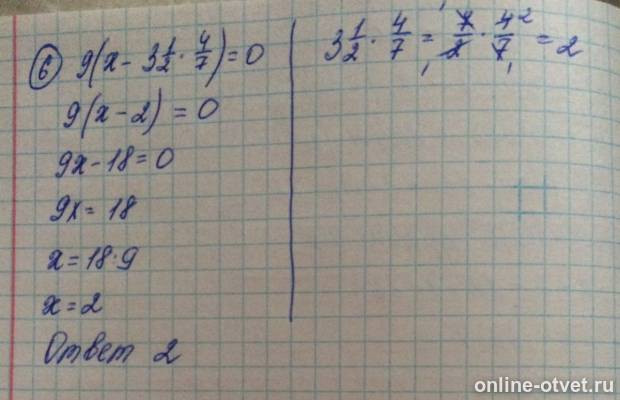 6 9(x - 3 1/2 · 4/7) = 0
9(x - 2) = 0
9x - 18 = 0
9x = 18
x = 18:9
x = 2
Ответ 2
3 1/2 · 4/7 = 7/2 · 4/7 = 2
online-otvet.ru